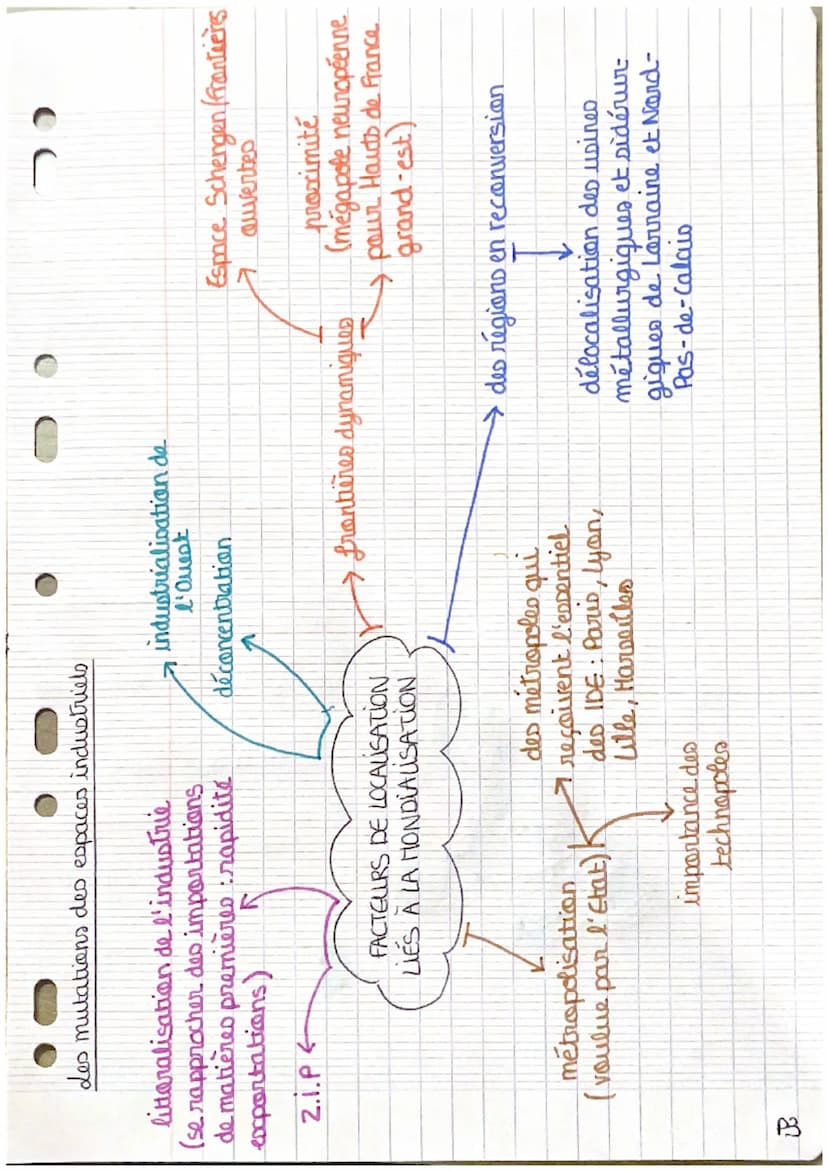 des mutations des espaces industriels
littoralisation de l'industrie
(se rapprocher des importations
de matières premières : rapidité
exportations)
Z.I.P
industrialisation de
l'Ouest
déconcentration
frontières dynamiques
Espace Schengen (Frontières
ouvertes
proximité
(mégapole neuropéenne
pour Hauts de France
grand-est)
FACTEURS DE LOCALISATION
LIÉS À LA MONDIALISATION
des régions en reconversion
délocalisation des usines
métallurgiques et sidérur-
giques de Lorraine et Nord-
Pas-de-Calais
métropolisation
(voulue par l'État)
des métropoles qui
reçoivent l'essentiel
des IDE : Paris, Lyon,
Lille, Marseilles
importance des
technopoles